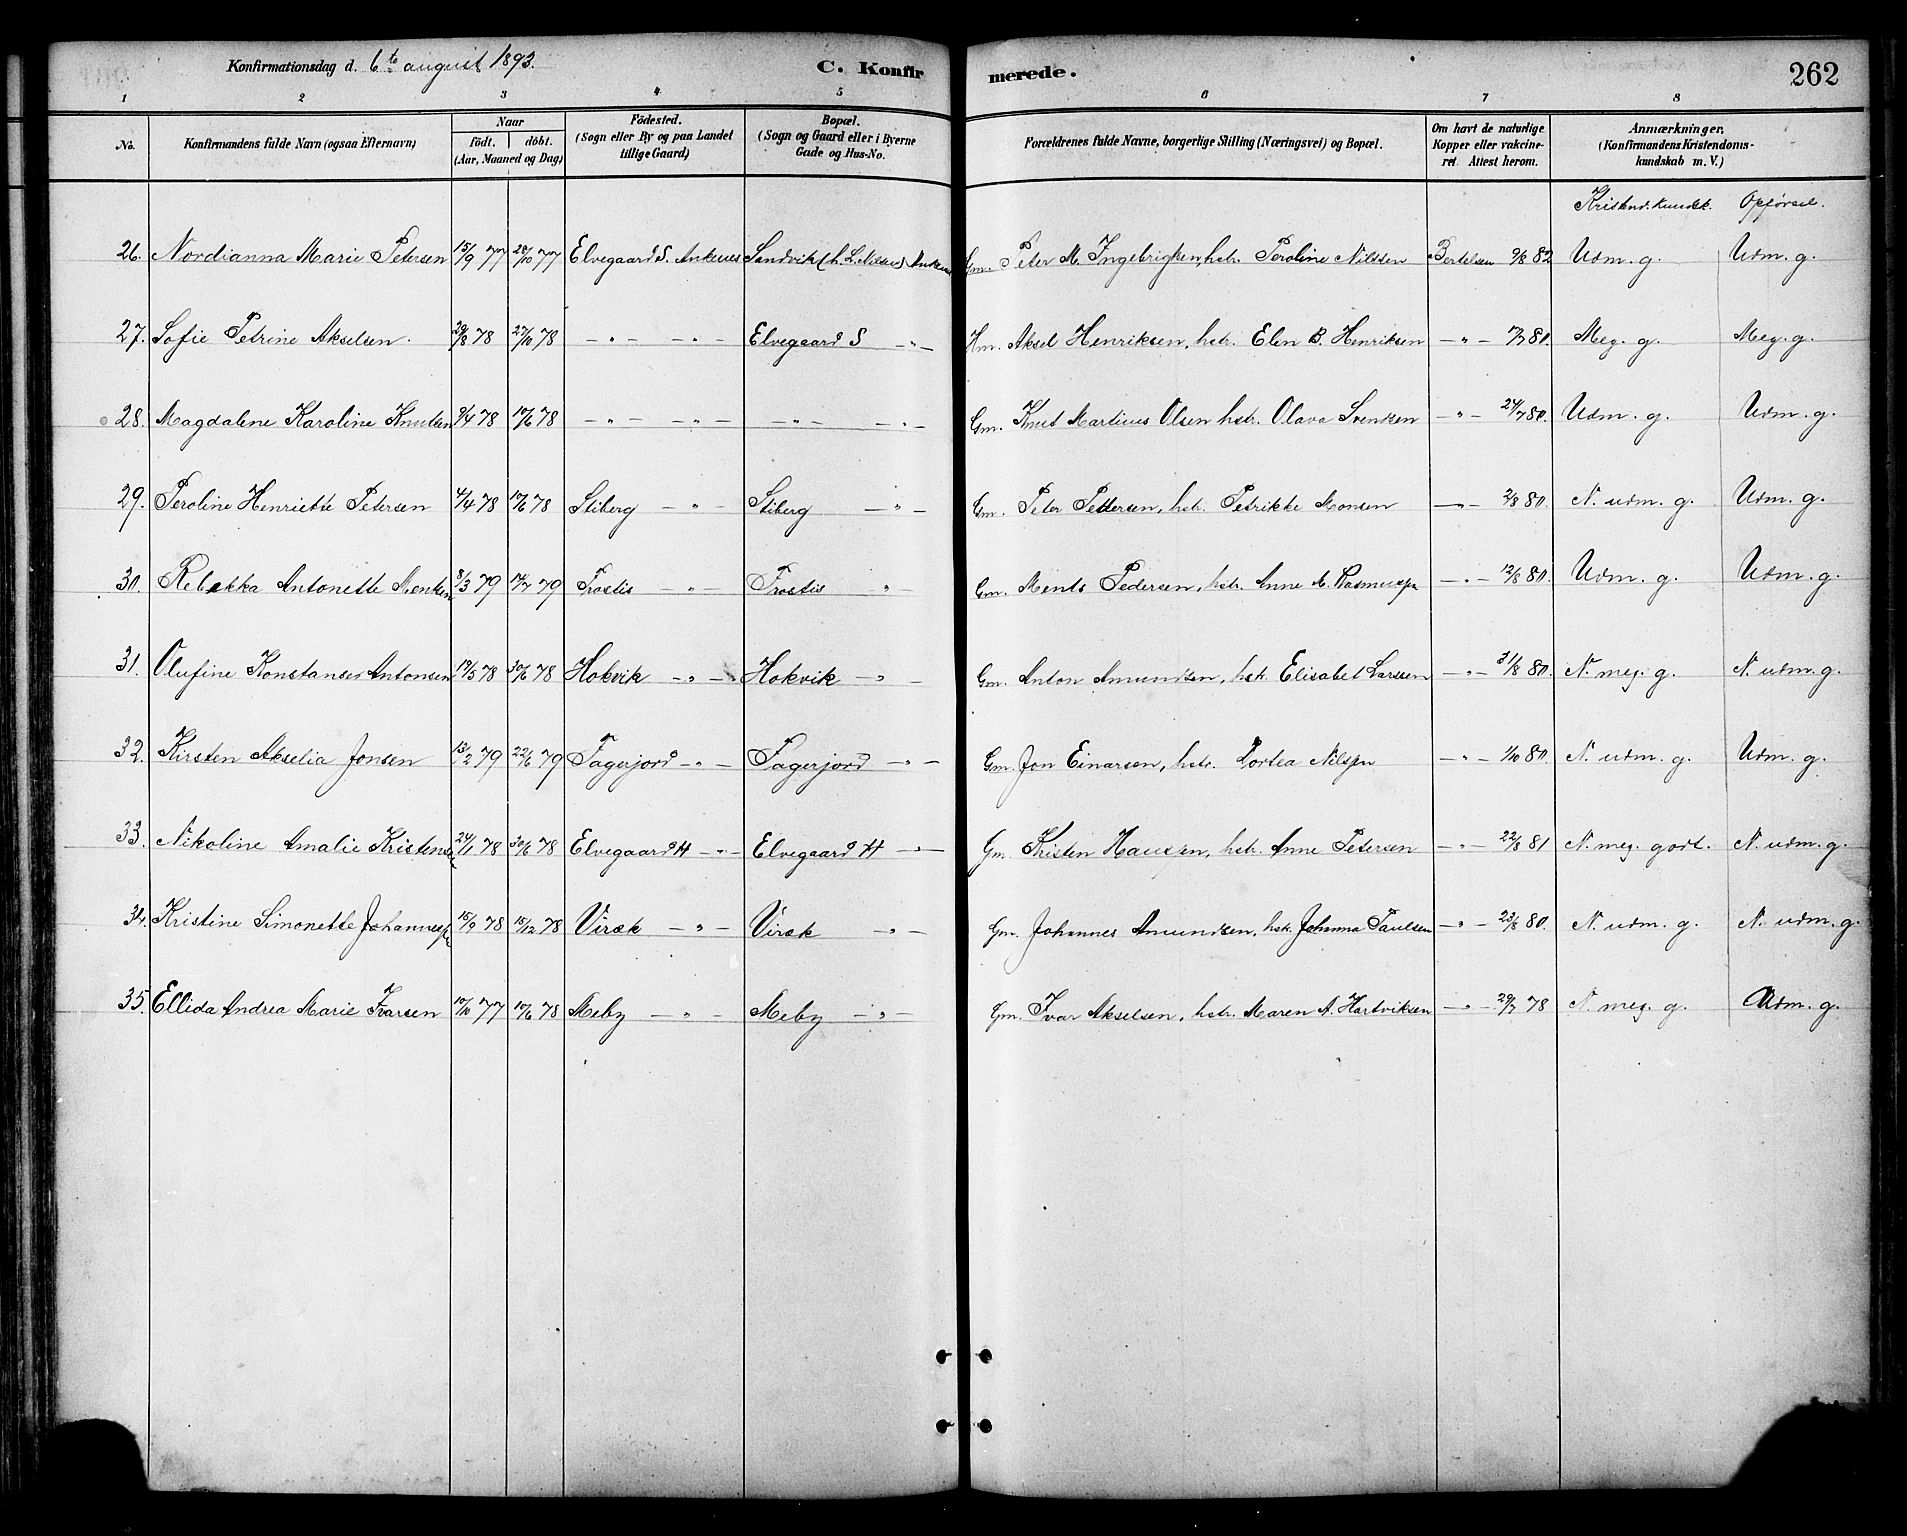 Konfirmationsdag d. 6te august 1893.
C. Konfir
merede.
262
1 2 3 4 5 6 7 8
No.
Konfirmandens fulde Navn (ogsaa Efternavn)
Naar
födt. döbt.
(Aar, Maaned og Dag)
Födested.
(Sogn eller By og paa Landet
tillige Gaard)
Bopæl.
(Sogn og Gaard eller i Byerne
Gade og Hus-No.
Forældrenes fulde Navne, borgerlige Stilling (Næringsvei) og Bopæl.
Om havt de naturlige
Kopper eller vakcine-
ret. Attest herom.
Anmærkninger.
(Konfirmandens Kristendoms-
kundskab m. V.)
Kristend. kundsk. Opførsel.
26. Nordianna Marie Petersen 15/9 77 28/10 77 Elvegaard S. Ankenes Sandvik (h. L. Nilsen) Ankenes Gm. Peter M. Ingebrigtsen, hstr. Peroline Nilssen Bertelsen 9/8 82 Udm. g. Udm. g.
27. Sofie Petrine Akselsen. 29/8 78 27/10 78 —"— —"— Elvegaard S —"— Hm. Aksel Henriksen, hstr. Elen B. Henriksen —"— 7/7 80. Meg. g. Meg. g.
28. Magdalene Karoline Knutsen 9/4 78 10/6 78 —"— —"— —"— —"— Gm. Knut Martinus Olsen hstr. Olava Svendsen —"— 24/7 80. Udm. g. Udm. g.
29. Peroline Henriette Petersen 4/4 78 10/6 78 Stiberg —"— Stiberg —"— Gm. Peter Pettersen, hstr. Petrikke Monsen —"— 2/8 80. N. udm. g. Udm. g.
30. Rebekka Antonette Mentsen 8/3 79 14/7 79 Trostis —"— Trostis " Gm. Ments Pedersen, hstr. Anne M. Rasmussen —"— 12/8 80. Udm. g. Udm. g.
31. Olufine Konstanse Antonsen. 19/3 78 30/6 78 Hokvik —"— Hokvik —"— Gm. Anton Amundsen, hstr. Elisabet Larssen —"— 31/8 80. N. meg. g. N. udm. g.
32. Kirsten Akselia Jonsen 13/2 79 22/6 79 Fagerjord —"— Fagerjord —"— Gm. Jon Einarsen, hstr. Dortea Nilssen —"— 1/10 80. N. udm. g. Udm. g.
33. Nikoline Amalie Kristensen 24/1 78 30/6 78 Elvegaard H —"— Elvegaard H —"— Gm. Kristen Hanssen, hstr. Anne Petersen —"— 22/8 81 N. meg. godt. N. udm. g.
34. Kristine Simonette Johannessen 15/9 78 15/12 78 Virak —"— Virak —"— Gm. Johannes Amundsen, hstr. Johanna Paulsen —"— 23/8 80. N. udm. g. N. udm. g.
35. Ellida Andrea Marie Ivarsen 10/10 77 10/6 78 Meby —"— Meby —"— Gm. Ivar Akselsen, hstr. Maren A. Hartviksen —"— 29/7 78 N. meg. g. Udm. g.